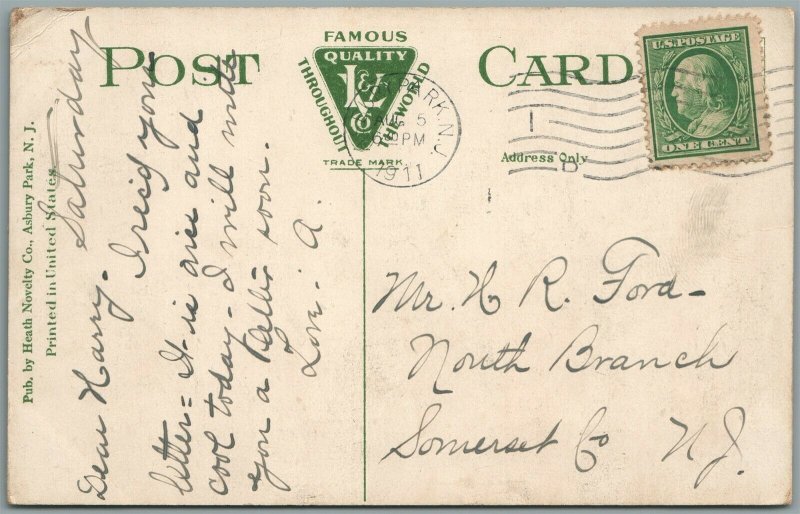 POST CARD
FAMOUS
QUALITY
THROUGHOUT THE WORLD
TRADE MARK
PARK, N.J.
AUG 5
PM
1911
U.S. POSTAGE
ONE CENT
Address Only
Pub. by Heath Novelty Co., Asbury Park, N. J.
Printed in United States.
Saturday
Dear Harry.
I rec'd your
letter = It is nice and
cool today - I will write
you a letter soon.
Love. A.
Mr. H R. Ford -
North Branch
Somerset Co N.J.